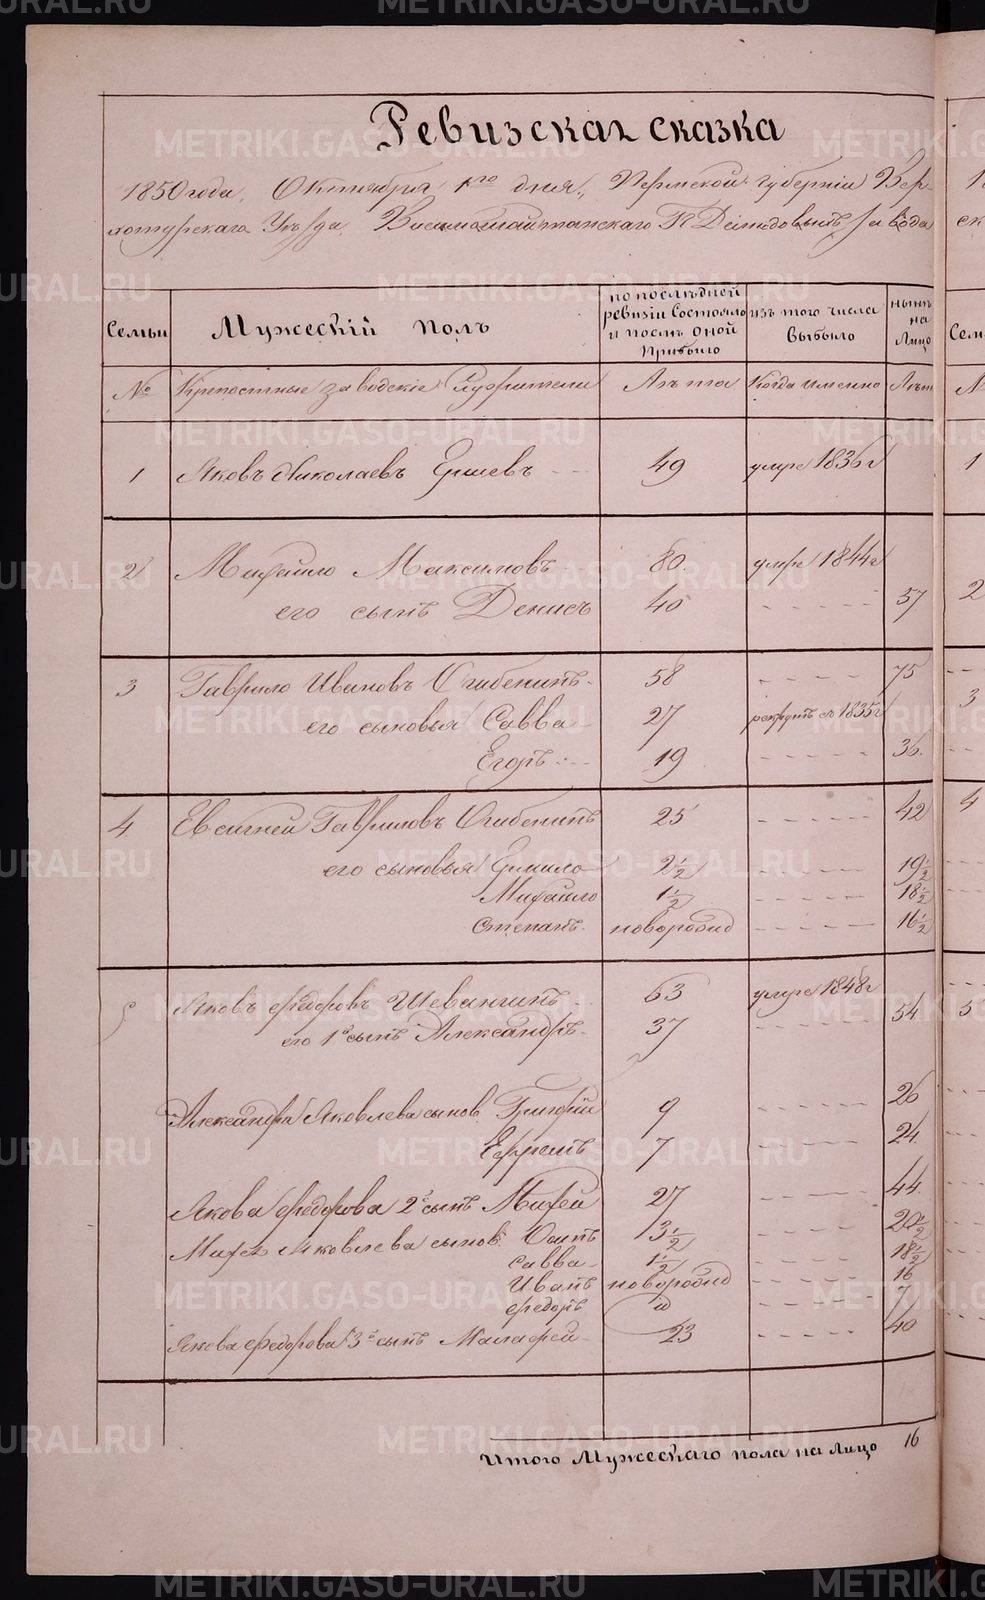 Ревизская сказка
1850 года, Октября 1го дня, Пермской губерніи Вер-
хотурскаго Уѣзда Висимошайтанскаго П Демидовыхъ завода
Семьи
Мужескій полъ
по послѣдней ревизіи Состояло и послѣ оной Прибыло
изъ того числа выбыло
нынѣ на Лицо
№ Крѣпостные заводскіе Служители Лѣта Когда именно Лѣта
1 Яковъ Николаевъ Ершевъ 49 умре 1836 г
2 Михайло Максимовъ 80 умре 1844 г
его сынъ Денисъ 40 57
3 Гаврило Ивановъ Огибенинъ 58 75
его сыновья Савва 27 рекрутъ въ 1835 г
Егоръ 19 36
4 Евсигней Гавриловъ Огибенинъ 25 42
его сыновья Ермило 2½ 19½
Михайло 1½ 18½
Степанъ новорожд 16½
5 Яковъ Федоровъ Шевангинъ 63 умре 1848 г
его 1й сынъ Александръ 37 54
Александра Яковлева сынов. Григорій 9 26
Ефремъ 7 24
Якова Федорова 2й сынъ Михей 27 44
Михея Яковлева сынов. Осипъ 3½ 20½
Савва 1½ 18½
Иванъ новорожд 16
Федоръ 7
Якова Федорова 3й сынъ Малафей 23 40
Итого Мужескаго пола на лицо 16
METRIKI.GASO-URAL.RU